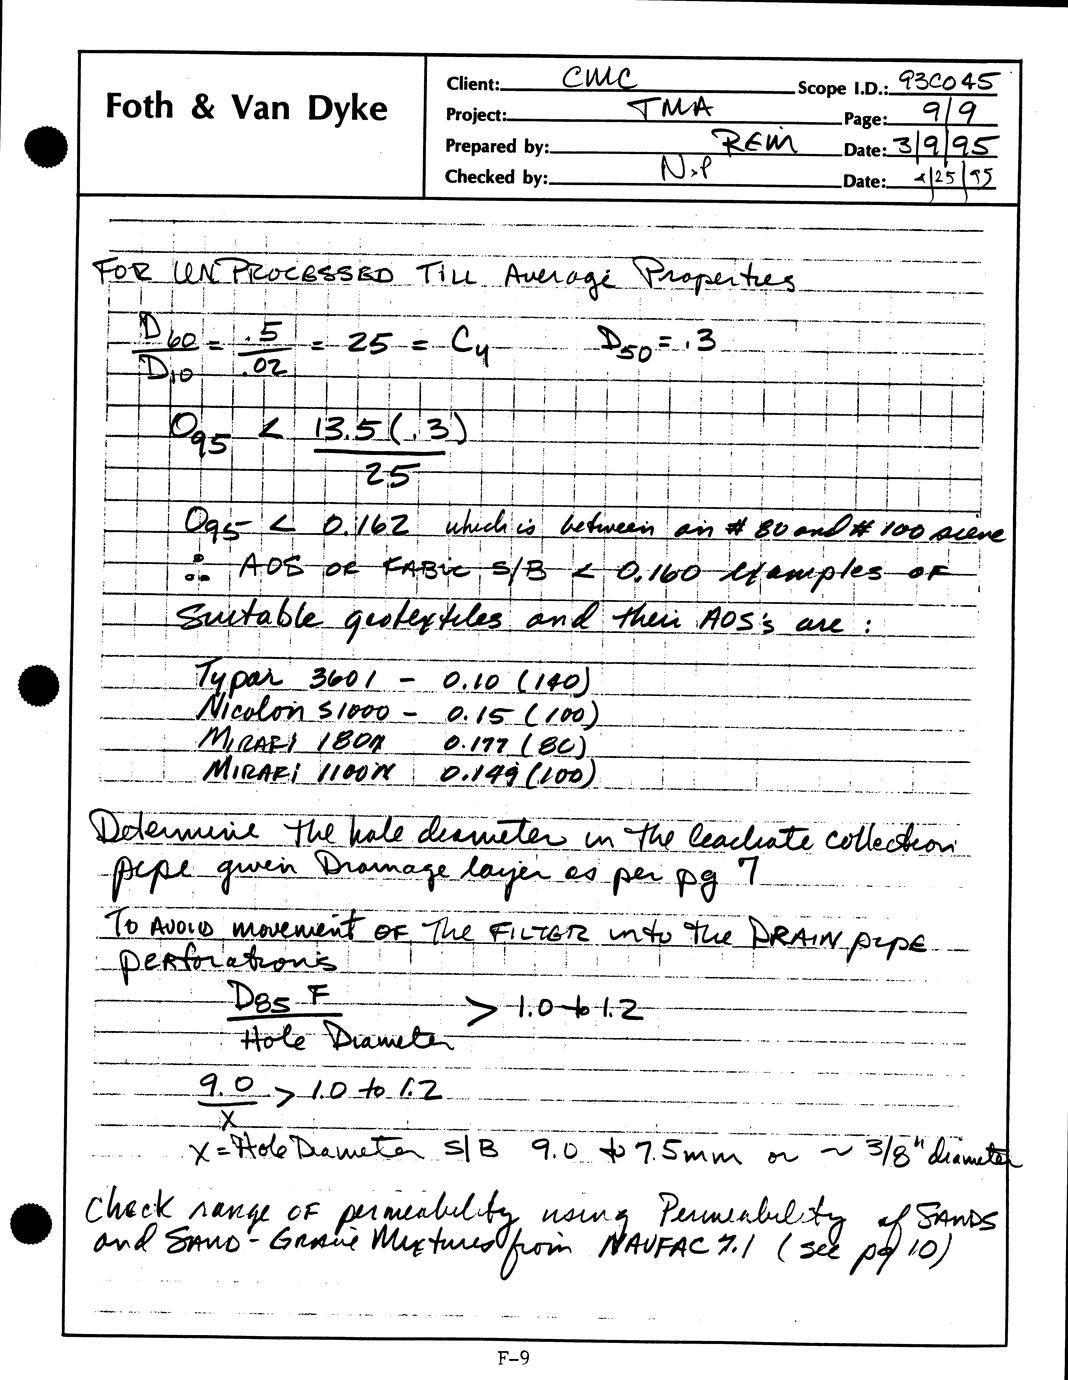 Foth & Van Dyke
Client: CMC Scope I.D.: 93C045
Project: TMA Page: 9/9
Prepared by: REM Date: 3/9/95
Checked by: N.P Date: 4/25/95
FOR UNPROCESSED TILL Average Properties
D60 / D10 = .5 / .02 = 25 = Cu D50 = .3
O95 < 13.5(.3) / 25
O95 < 0.162 which is between an # 80 and # 100 sieve
∴ AOS OF FABIC S/B < 0.160 examples OF
Suitable geotextiles and their AOS's are :
Typar 3601 - 0.10 (140)
Nicolon S1000 - 0.15 (100)
MIRAFI 180N 0.177 (80)
MIRAFI 1100N 0.149 (100)
Determine the hole diameter in the leachate collection
pipe given Drainage layer as per pg 7
To AVOID movement OF The FILTER into the DRAIN pipe
perforations
D85 F / Hole Diameter > 1.0 to 1.2
9.0 / X > 1.0 to 1.2
X = Hole Diameter S/B 9.0 to 7.5mm or ~ 3/8" diameter
Check range OF permeability using Permeability of SANDS
and SAND-Gravel Mixtures from NAVFAC 7.1 (see pg 10)
F-9